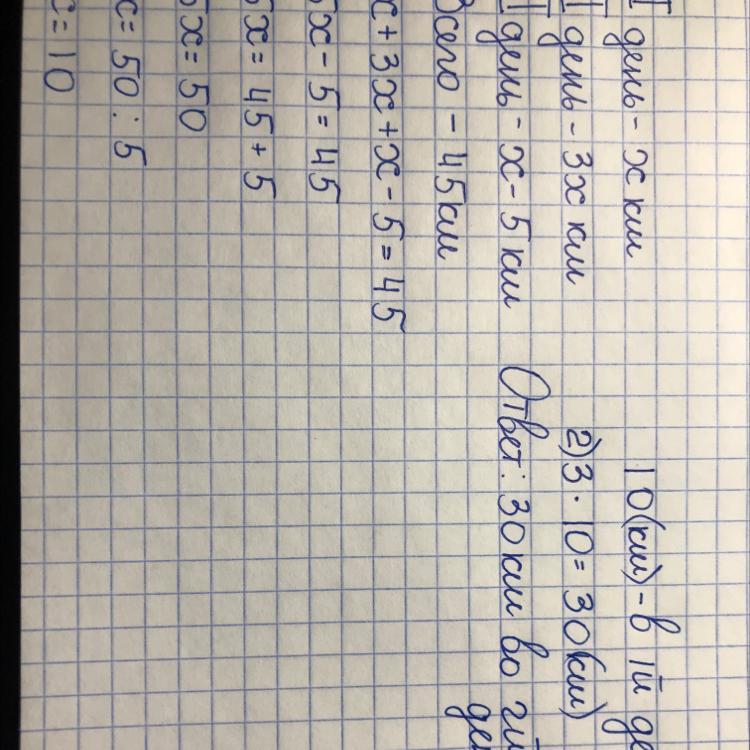 I день - x км
II день - 3x км
II день - x - 5 км
Всего - 45 км
x + 3x + x - 5 = 45
5x - 5 = 45
5x = 45 + 5
5x = 50
x = 50 : 5
x = 10
10(км) - в Iй де
2) 3 · 10 = 30(км)
Ответ: 30 км во 2й
ден